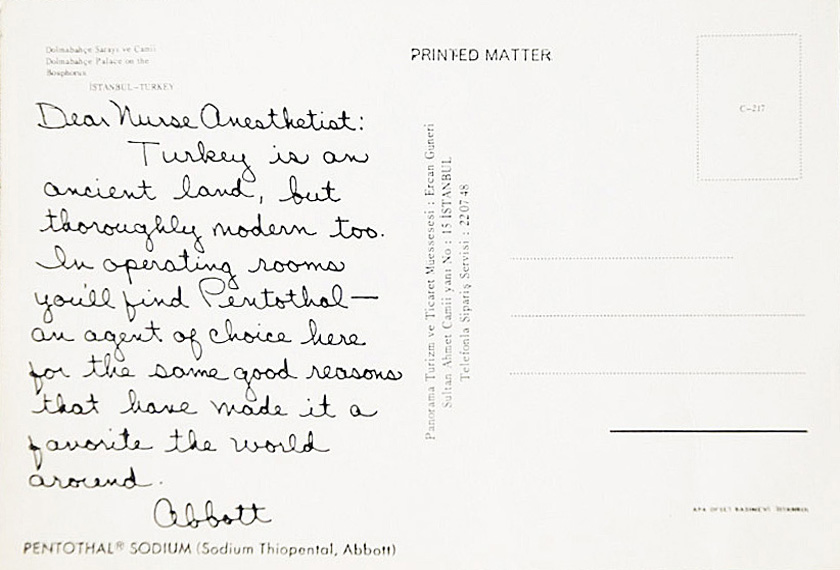 Dolmabahçe Sarayı ve Camii
Dolmabahçe Palace on the
Bosphorus
İSTANBUL-TURKEY
Dear Nurse Anesthetist:
Turkey is an
ancient land, but
thoroughly modern too.
In operating rooms
you'll find Pentothal—
an agent of choice here
for the same good reasons
that have made it a
favorite the world
around.
Abbott
PENTOTHAL® SODIUM (Sodium Thiopental, Abbott)
PRINTED MATTER
Panorama Turizm ve Ticaret Muessesesi : Ercan Guneri
Sultan Ahmet Camii yanı No : 15 İSTANBUL
Telefonla Sipariş Servisi : 22 07 48
C-217
APA OFSET BASIMEVİ İSTANBUL